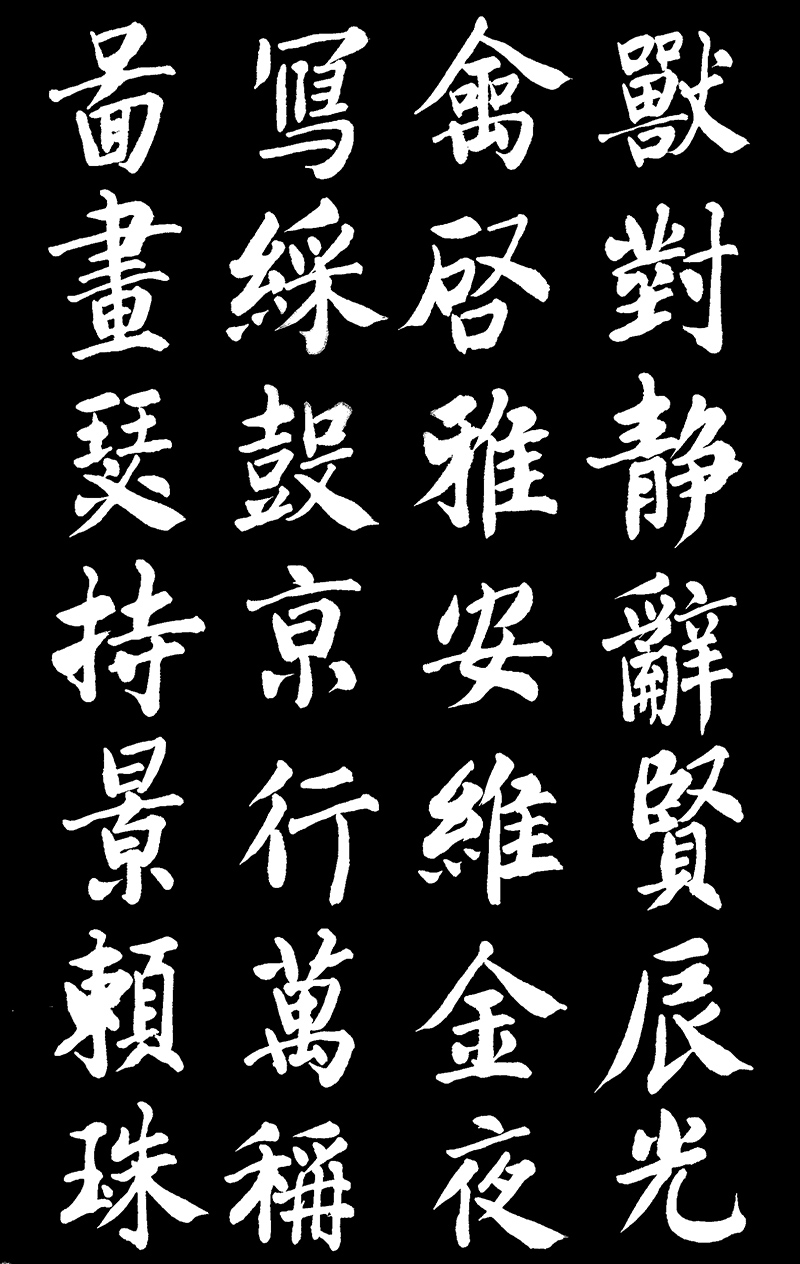 啚冩禽獸
畫綵啓對
瑟鼓雅静
持亰安辭
景行維賢
頼萬金辰
珠稱夜光